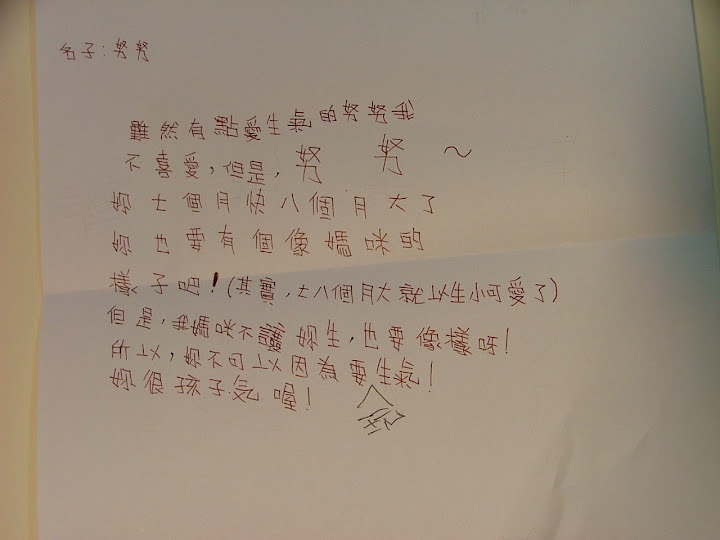 名子：努努
雖然有點愛生氣的努努我
不喜愛，但是，努 努～
妳七個月快八個月大了
妳也要有個像媽咪的
樣子吧！（其實，七八個月大就以生小可愛了）
但是，我媽咪不讓妳生，也要像樣呀！
所以，妳不可以因為要生氣！
妳很孩子気喔！